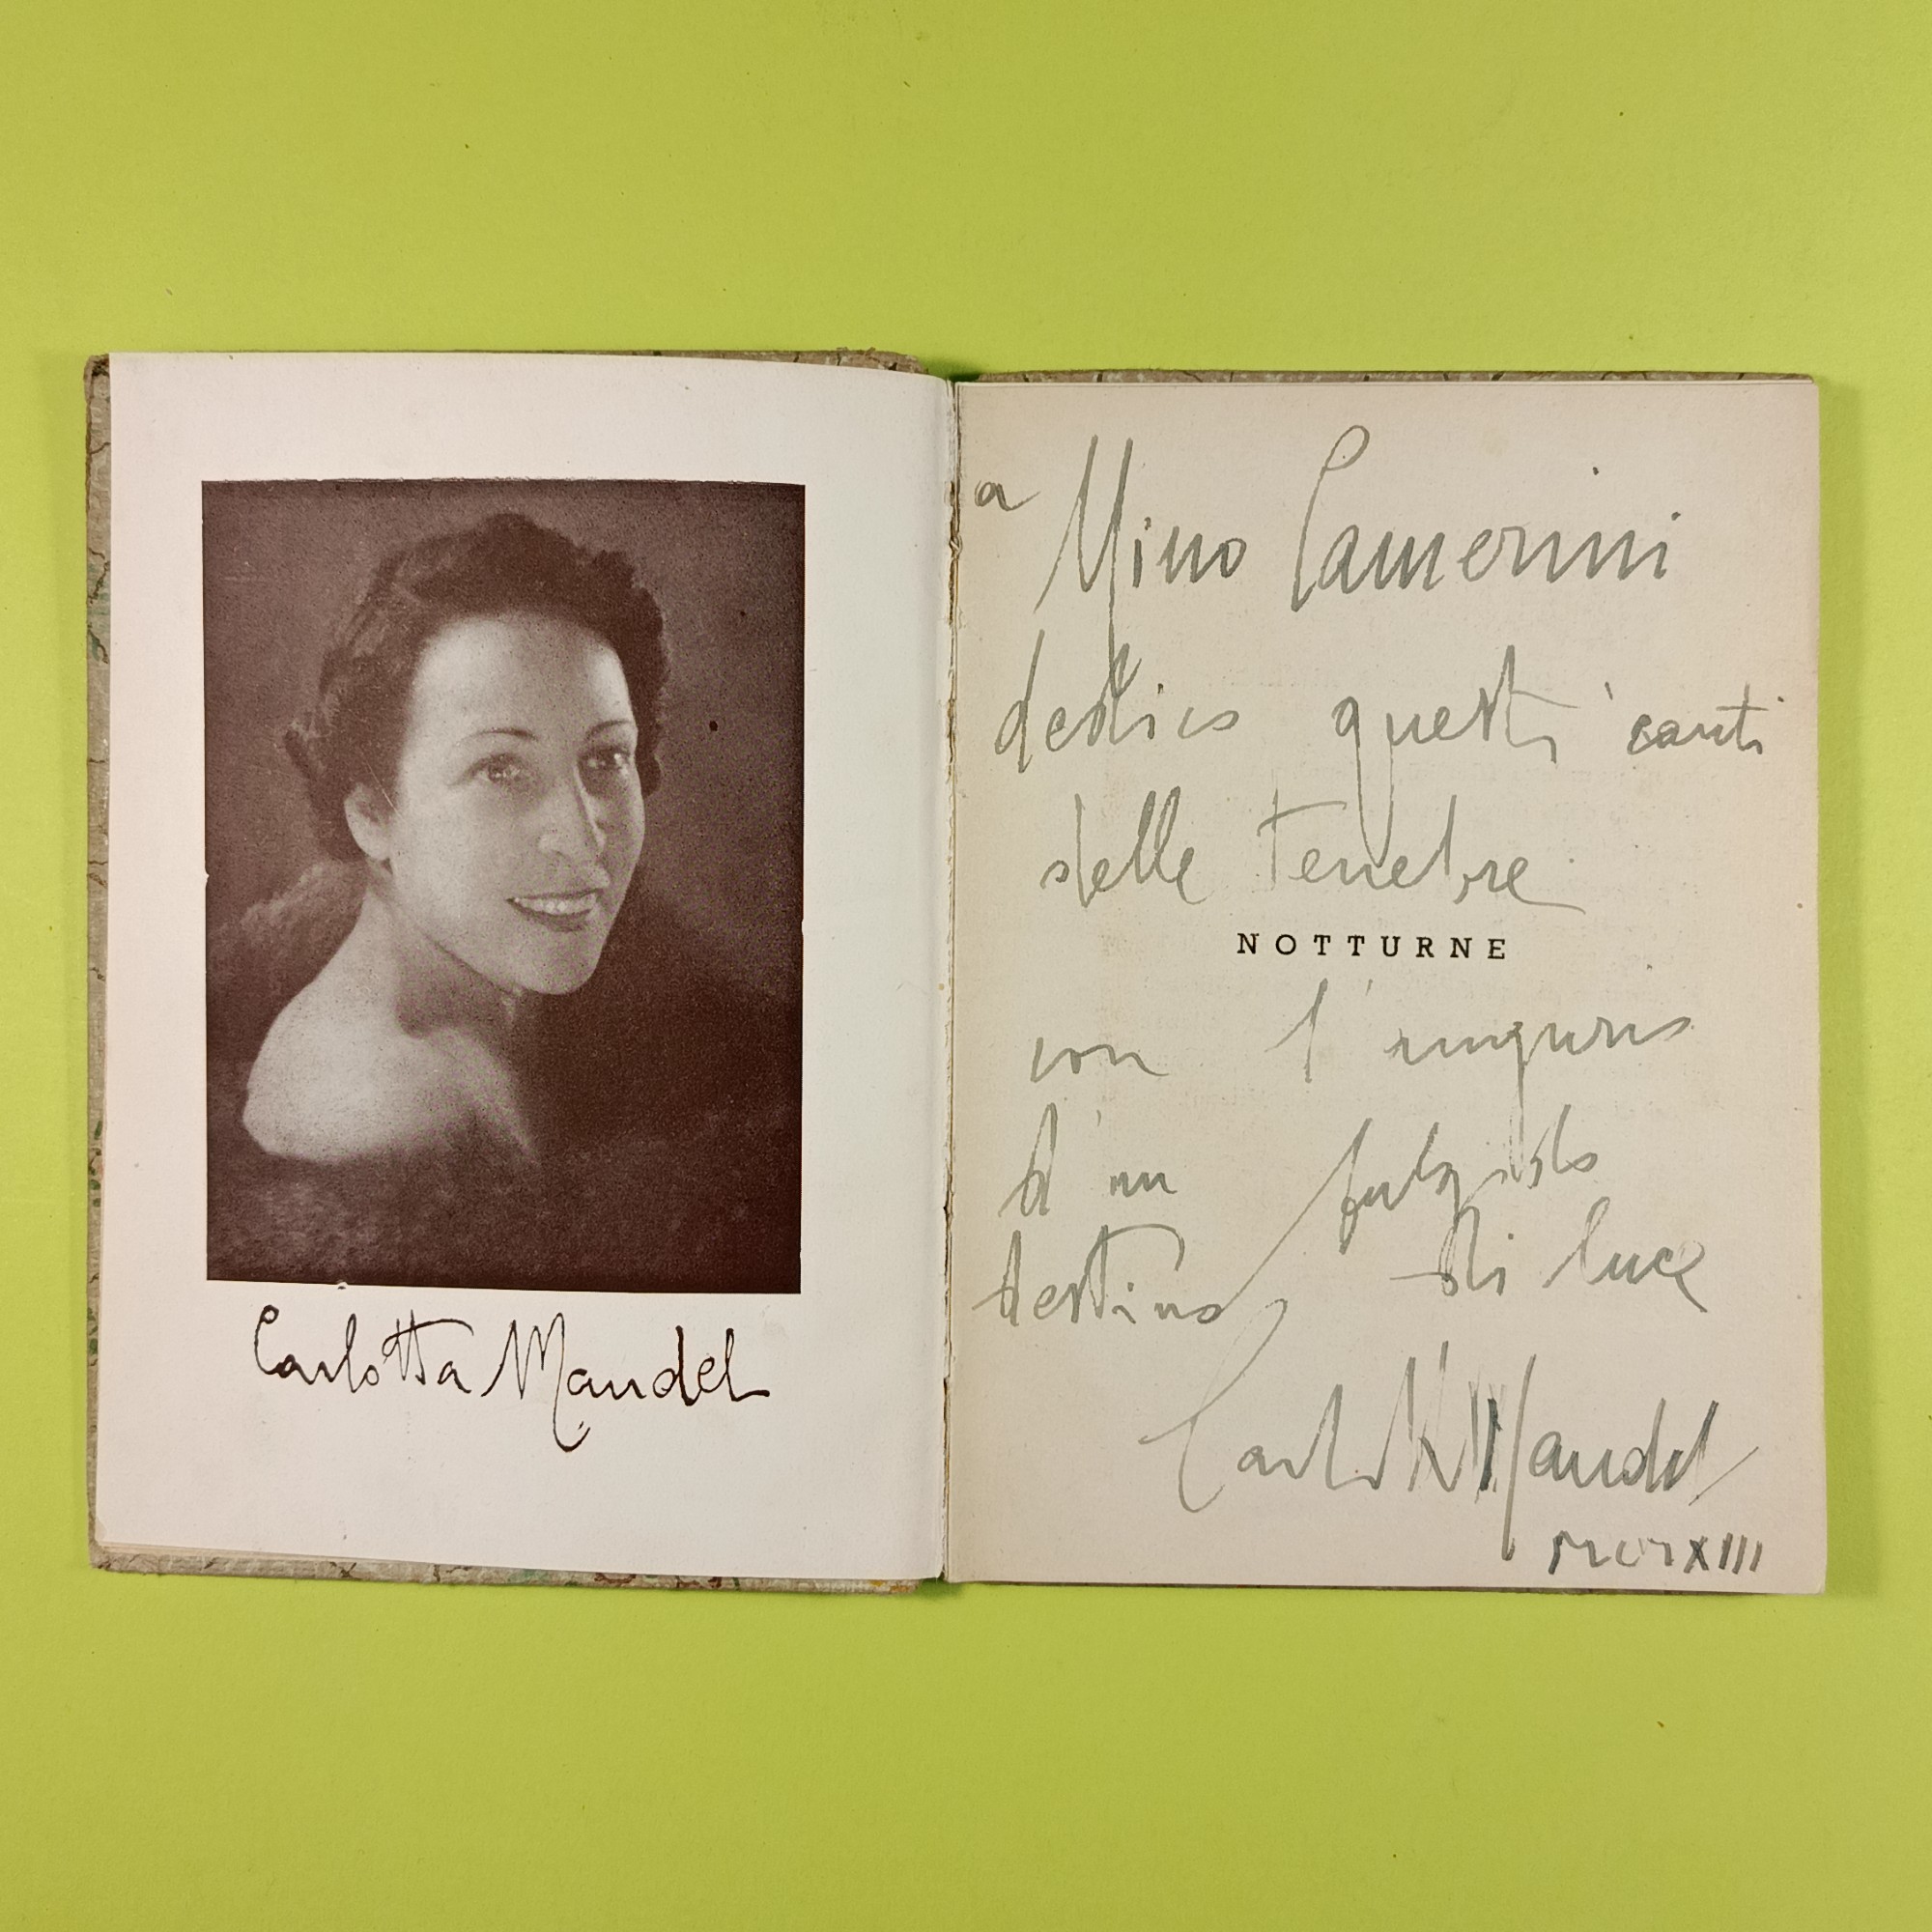 Carlotta Mandel
a Mino Camerini
dedico questi canti
delle tenebre
NOTTURNE
con l'augurio
d'un fulgido
destino di luce
Carlotta Mandel
XIII